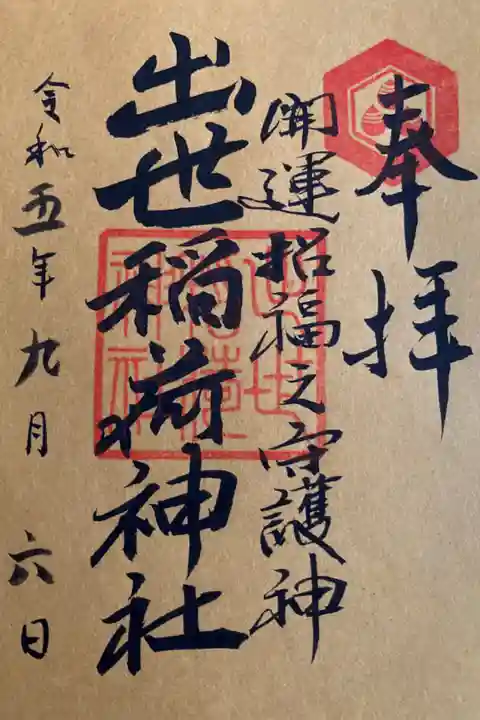 奉拝
開運招福之守護神
出世稲荷神社
令和五年九月六日
出世
稲荷
神社